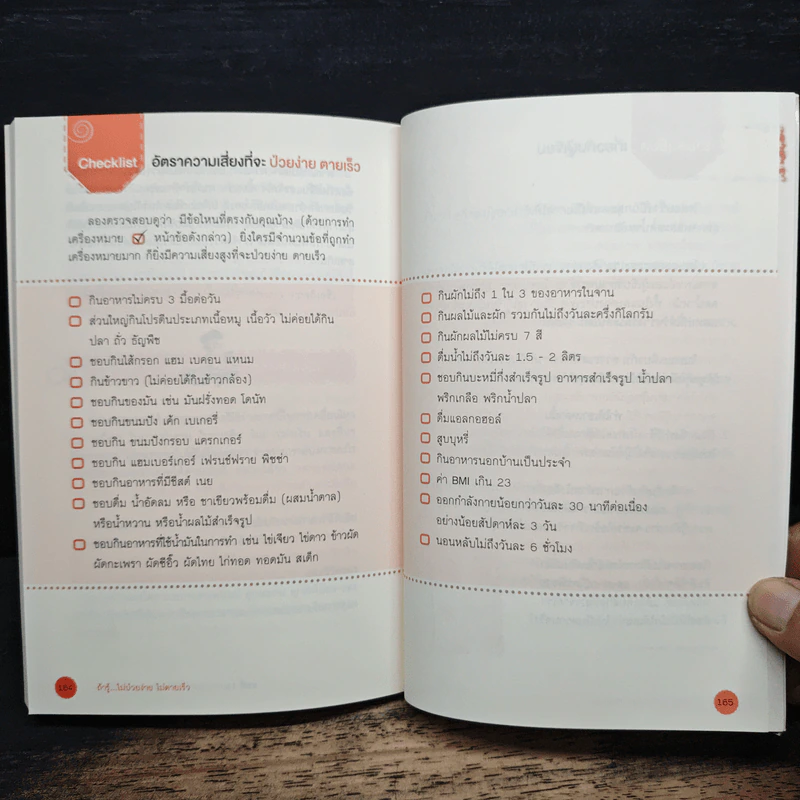 Checklist
อัตราความเสี่ยงที่จะ ป่วยง่าย ตายเร็ว
ลองตรวจสอบดูว่า มีข้อไหนที่ตรงกับคุณบ้าง (ด้วยการทำ
เครื่องหมาย หน้าข้อดังกล่าว) ยิ่งใครมีจำนวนข้อที่ถูกทำ
เครื่องหมายมาก ก็ยิ่งมีความเสี่ยงสูงที่จะป่วยง่าย ตายเร็ว
กินอาหารไม่ครบ 3 มื้อต่อวัน
ส่วนใหญ่กินโปรตีนประเภทเนื้อหมู เนื้อวัว ไม่ค่อยได้กิน
ปลา ถั่ว ธัญพืช
ชอบกินไส้กรอก แฮม เบคอน แหนม
กินข้าวขาว (ไม่ค่อยได้กินข้าวกล้อง)
ชอบกินของมัน เช่น มันฝรั่งทอด โดนัท
ชอบกินขนมปัง เค้ก เบเกอรี่
ชอบกิน ขนมปังกรอบ แครกเกอร์
ชอบกิน แฮมเบอร์เกอร์ เฟรนช์ฟราย พิซซ่า
ชอบกินอาหารที่มีชีสต์ เนย
ชอบดื่ม น้ำอัดลม หรือ ชาเขียวพร้อมดื่ม (ผสมน้ำตาล)
หรือน้ำหวาน หรือน้ำผลไม้สำเร็จรูป
ชอบกินอาหารที่ใช้น้ำมันในการทำ เช่น ไข่เจียว ไข่ดาว ข้าวผัด
ผัดกะเพรา ผัดซีอิ๊ว ผัดไทย ไก่ทอด ทอดมัน สเต็ก
164 ถ้ารู้...ไม่ป่วยง่าย ไม่ตายเร็ว
กินผักไม่ถึง 1 ใน 3 ของอาหารในจาน
กินผลไม้และผัก รวมกันไม่ถึงวันละครึ่งกิโลกรัม
กินผักผลไม้ไม่ครบ 7 สี
ดื่มน้ำไม่ถึงวันละ 1.5 - 2 ลิตร
ชอบกินบะหมี่กึ่งสำเร็จรูป อาหารสำเร็จรูป น้ำปลา
พริกเกลือ พริกน้ำปลา
ดื่มแอลกอฮอล์
สูบบุหรี่
กินอาหารนอกบ้านเป็นประจำ
ค่า BMI เกิน 23
ออกกำลังกายน้อยกว่าวันละ 30 นาทีต่อเนื่อง
อย่างน้อยสัปดาห์ละ 3 วัน
นอนหลับไม่ถึงวันละ 6 ชั่วโมง
165